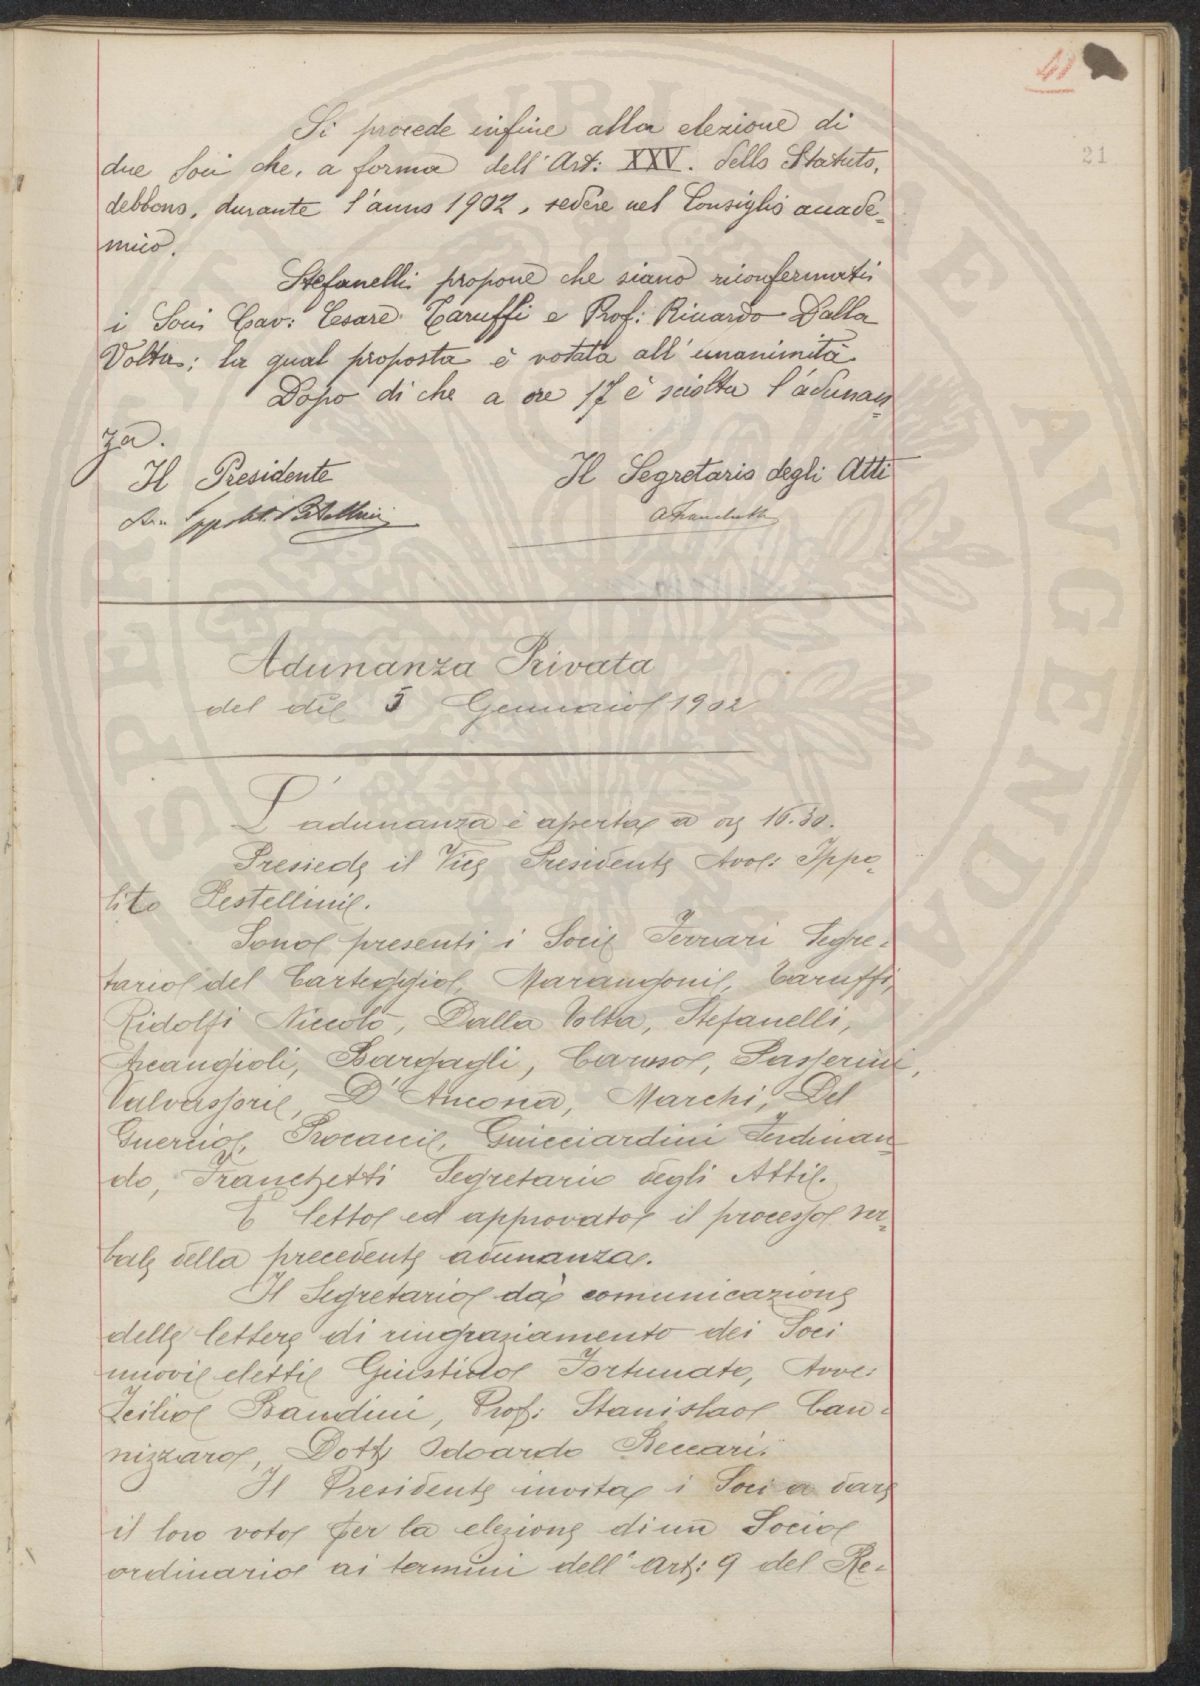 41
21
Si procede infine alla elezione di
due Soci che, a forma dell'Art: XXV. dello Statuto,
debbono, durante l'anno 1902, sedere nel Consiglio accade=
mico.
Stefanelli propone che siano riconfermati
i Soci Cav: Cesare Taruffi e Prof: Riccardo Dalla
Volta; la qual proposta è votata all'unanimità.
Dopo di che a ore 17 è sciolta l'adunan=
za.
Il Presidente
Il Segretario degli Atti
Ippolito Pestellini
AFranchetti
Adunanza Privata
del dì 5 Gennaio 1902
L'adunanza è aperta a ore 16.30.
Presiede il Vice Presidente Avv: Ippo=
lito Pestellini.
Sono presenti i Soci Ferrari Segre=
tario del Carteggio, Marangoni, Taruffi,
Ridolfi Niccolò, Dalla Volta, Stefanelli,
Arcangioli, Bargagli, Caruso, Passerini,
Valvassori, D'Ancona, Marchi, Del
Guercio, Procacci, Guicciardini Ferdinan=
do, Franchetti Segretario degli Atti.
È letto ed approvato il processo ver=
bale della precedente adunanza.
Il Segretario dà comunicazione
delle lettere di ringraziamento dei Soci
nuovi eletti Giustino Fortunato, Avv:
Icilio Bandini, Prof: Stanislao Can=
nizzaro, Dott Odoardo Beccari.
Il Presidente invita i Soci a dare
il loro voto per la elezione di un Socio
ordinario ai termini dell'Art: 9 del Re=
SPEREM UBI AVGENDA